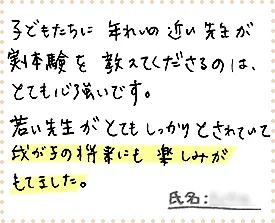 子どもたちに 年れいの近い先生が
実体験を 教えてくださるのは、
とても心強いです。
若い先生がとてもしっかりとされていて
我が子の将来にも 楽しみが
もてました。
氏名: